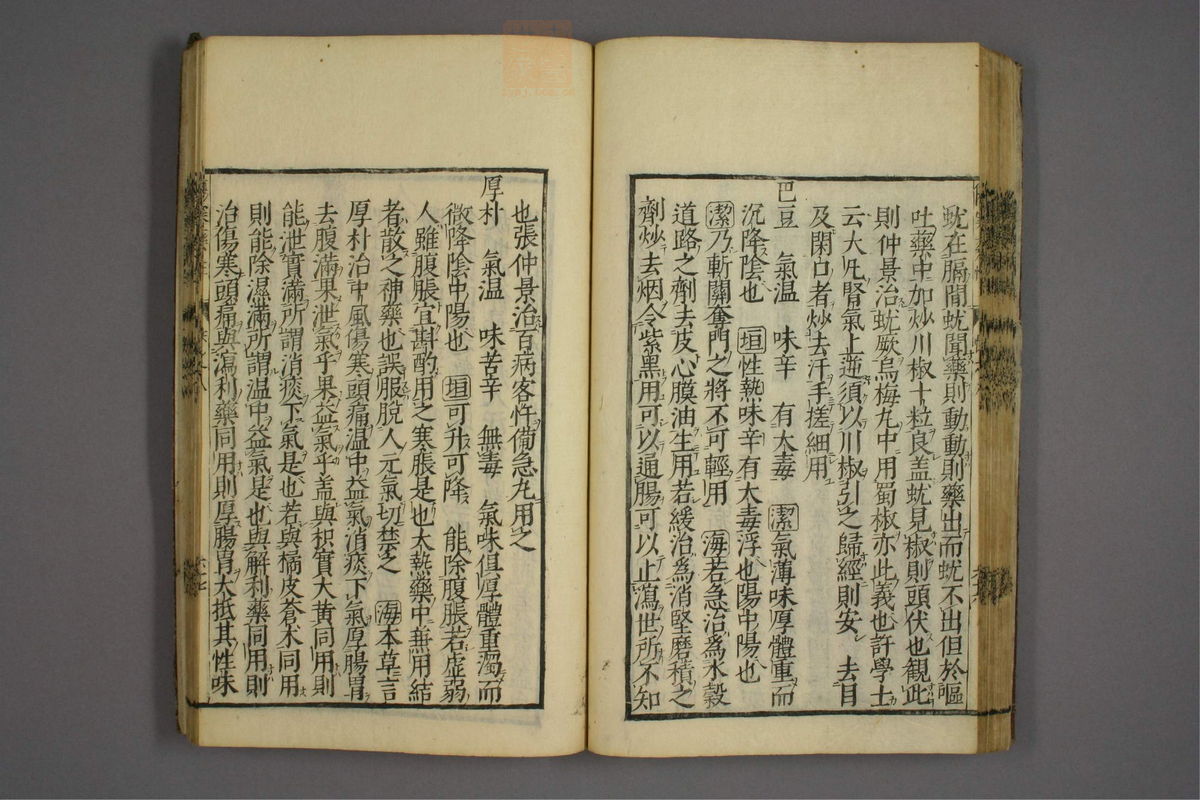 蚘在膈間蚘聞藥則動動則藥出而蚘不出但於嘔
吐藥中加炒川椒十粒良盖蚘見椒則頭伏也観此
則仲景治蚘厥烏梅丸中用蜀椒亦此義也許學士
云大凡腎氣上逆須以川椒引之歸經則安 去目
及閉口者炒去汗手搓細用
巴豆 氣温 味辛 有大毒 潔氣薄味厚體重而
沉降陰也 垣性熱味辛有大毒浮也陽中陽也
潔乃斬關奪門之將不可輕用 海若急治爲水穀
道路之劑去皮心膜油生用若緩治爲消堅磨積之
劑炒去烟令紫黑用可以通腸可以止瀉世所不知
也張仲景治百病客忤備急丸用之
厚朴 氣温 味苦辛 無毒 氣味俱厚體重濁而
微降陰中陽也 垣可升可降 能除腹脹若虚弱
人雖腹脹宜斟酌用之寒脹是也大熱藥中兼用結
者散之神藥也誤服脫人元氣切禁之 海本草言
厚朴治中風傷寒頭痛温中益氣消痰下氣厚腸胃
去腹滿果泄氣乎果益氣乎盖與枳實大黄同用則
能泄實滿所謂消痰下氣是也若與橘皮蒼术同用
則能除濕滿所謂温中益氣是也與解利藥同用則
治傷寒頭痛與瀉利藥同用則厚腸胃大抵其性味